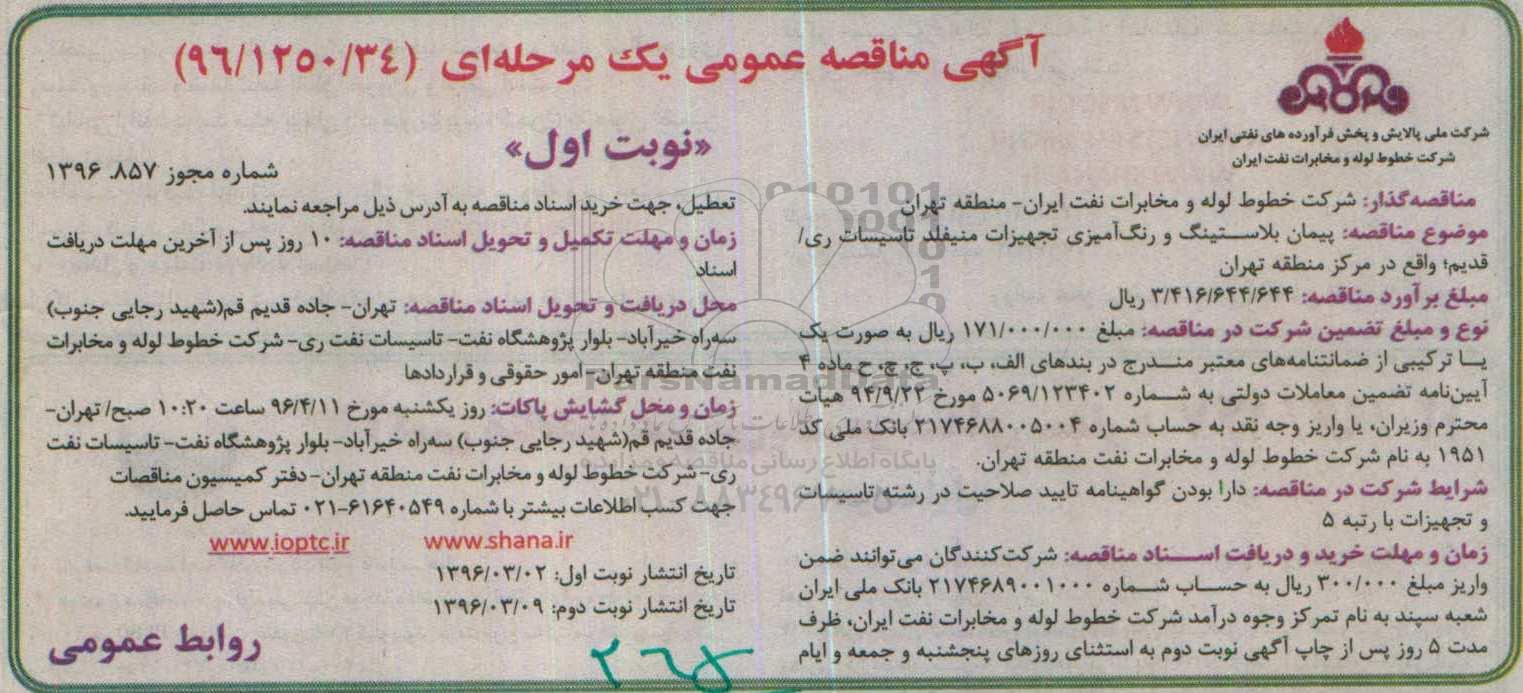 آگهی مناقصه عمومی یک مرحله‌ای (۹۶/۱۲۵۰/۳٤)
«نوبت اول»
شماره مجوز ۸۵۷. ۱۳۹۶
شرکت ملی پالایش و پخش فرآورده های نفتی ایران
شرکت خطوط لوله و مخابرات نفت ایران
مناقصه‌گذار: شرکت خطوط لوله و مخابرات نفت ایران- منطقه تهران
موضوع مناقصه: پیمان بلاستینگ و رنگ‌آمیزی تجهیزات منیفلد تاسیسات ری/
قدیم؛ واقع در مرکز منطقه تهران
مبلغ برآورد مناقصه: ۳/۴۱۶/۶۴۴/۶۴۴ ریال
نوع و مبلغ تضمین شرکت در مناقصه: مبلغ ۱۷۱/۰۰۰/۰۰۰ ریال به صورت یک
یا ترکیبی از ضمانتنامه‌های معتبر مندرج در بندهای الف، ب، پ، ج، چ، ح ماده ۴
آیین‌نامه تضمین معاملات دولتی به شماره ۵۰۶۹/۱۲۳۴۰۲ مورخ ۹۴/۹/۲۲ هیات
محترم وزیران، یا واریز وجه نقد به حساب شماره ۲۱۷۴۶۸۸۰۰۵۰۰۴ بانک ملی کد
۱۹۵۱ به نام شرکت خطوط لوله و مخابرات نفت منطقه تهران.
شرایط شرکت در مناقصه: دارا بودن گواهینامه تایید صلاحیت در رشته تاسیسات
و تجهیزات با رتبه ۵
زمان و مهلت خرید و دریافت اسناد مناقصه: شرکت‌کنندگان می‌توانند ضمن
واریز مبلغ ۳۰۰/۰۰۰ ریال به حساب شماره ۲۱۷۴۶۸۹۰۰۱۰۰۰ بانک ملی ایران
شعبه سپند به نام تمرکز وجوه درآمد شرکت خطوط لوله و مخابرات نفت ایران، ظرف
مدت ۵ روز پس از چاپ آگهی نوبت دوم به استثنای روزهای پنجشنبه و جمعه و ایام
تعطیل، جهت خرید اسناد مناقصه به آدرس ذیل مراجعه نمایند.
زمان و مهلت تکمیل و تحویل اسناد مناقصه: ۱۰ روز پس از آخرین مهلت دریافت
اسناد
محل دریافت و تحویل اسناد مناقصه: تهران- جاده قدیم قم(شهید رجایی جنوب)
سه‌راه خیرآباد- بلوار پژوهشگاه نفت- تاسیسات نفت ری- شرکت خطوط لوله و مخابرات
نفت منطقه تهران- امور حقوقی و قراردادها
زمان و محل گشایش پاکات: روز یکشنبه مورخ ۹۶/۴/۱۱ ساعت ۱۰:۲۰ صبح/ تهران-
جاده قدیم قم(شهید رجایی جنوب) سه‌راه خیرآباد- بلوار پژوهشگاه نفت- تاسیسات نفت
ری- شرکت خطوط لوله و مخابرات نفت منطقه تهران- دفتر کمیسیون مناقصات
جهت کسب اطلاعات بیشتر با شماره ۶۱۶۴۰۵۴۹-۰۲۱ تماس حاصل فرمایید.
www.shana.ir www.ioptc.ir
تاریخ انتشار نوبت اول: ۱۳۹۶/۰۳/۰۲
تاریخ انتشار نوبت دوم: ۱۳۹۶/۰۳/۰۹
روابط عمومی
ParsNamadData
پایگاه اطلاع رسانی مناقصه